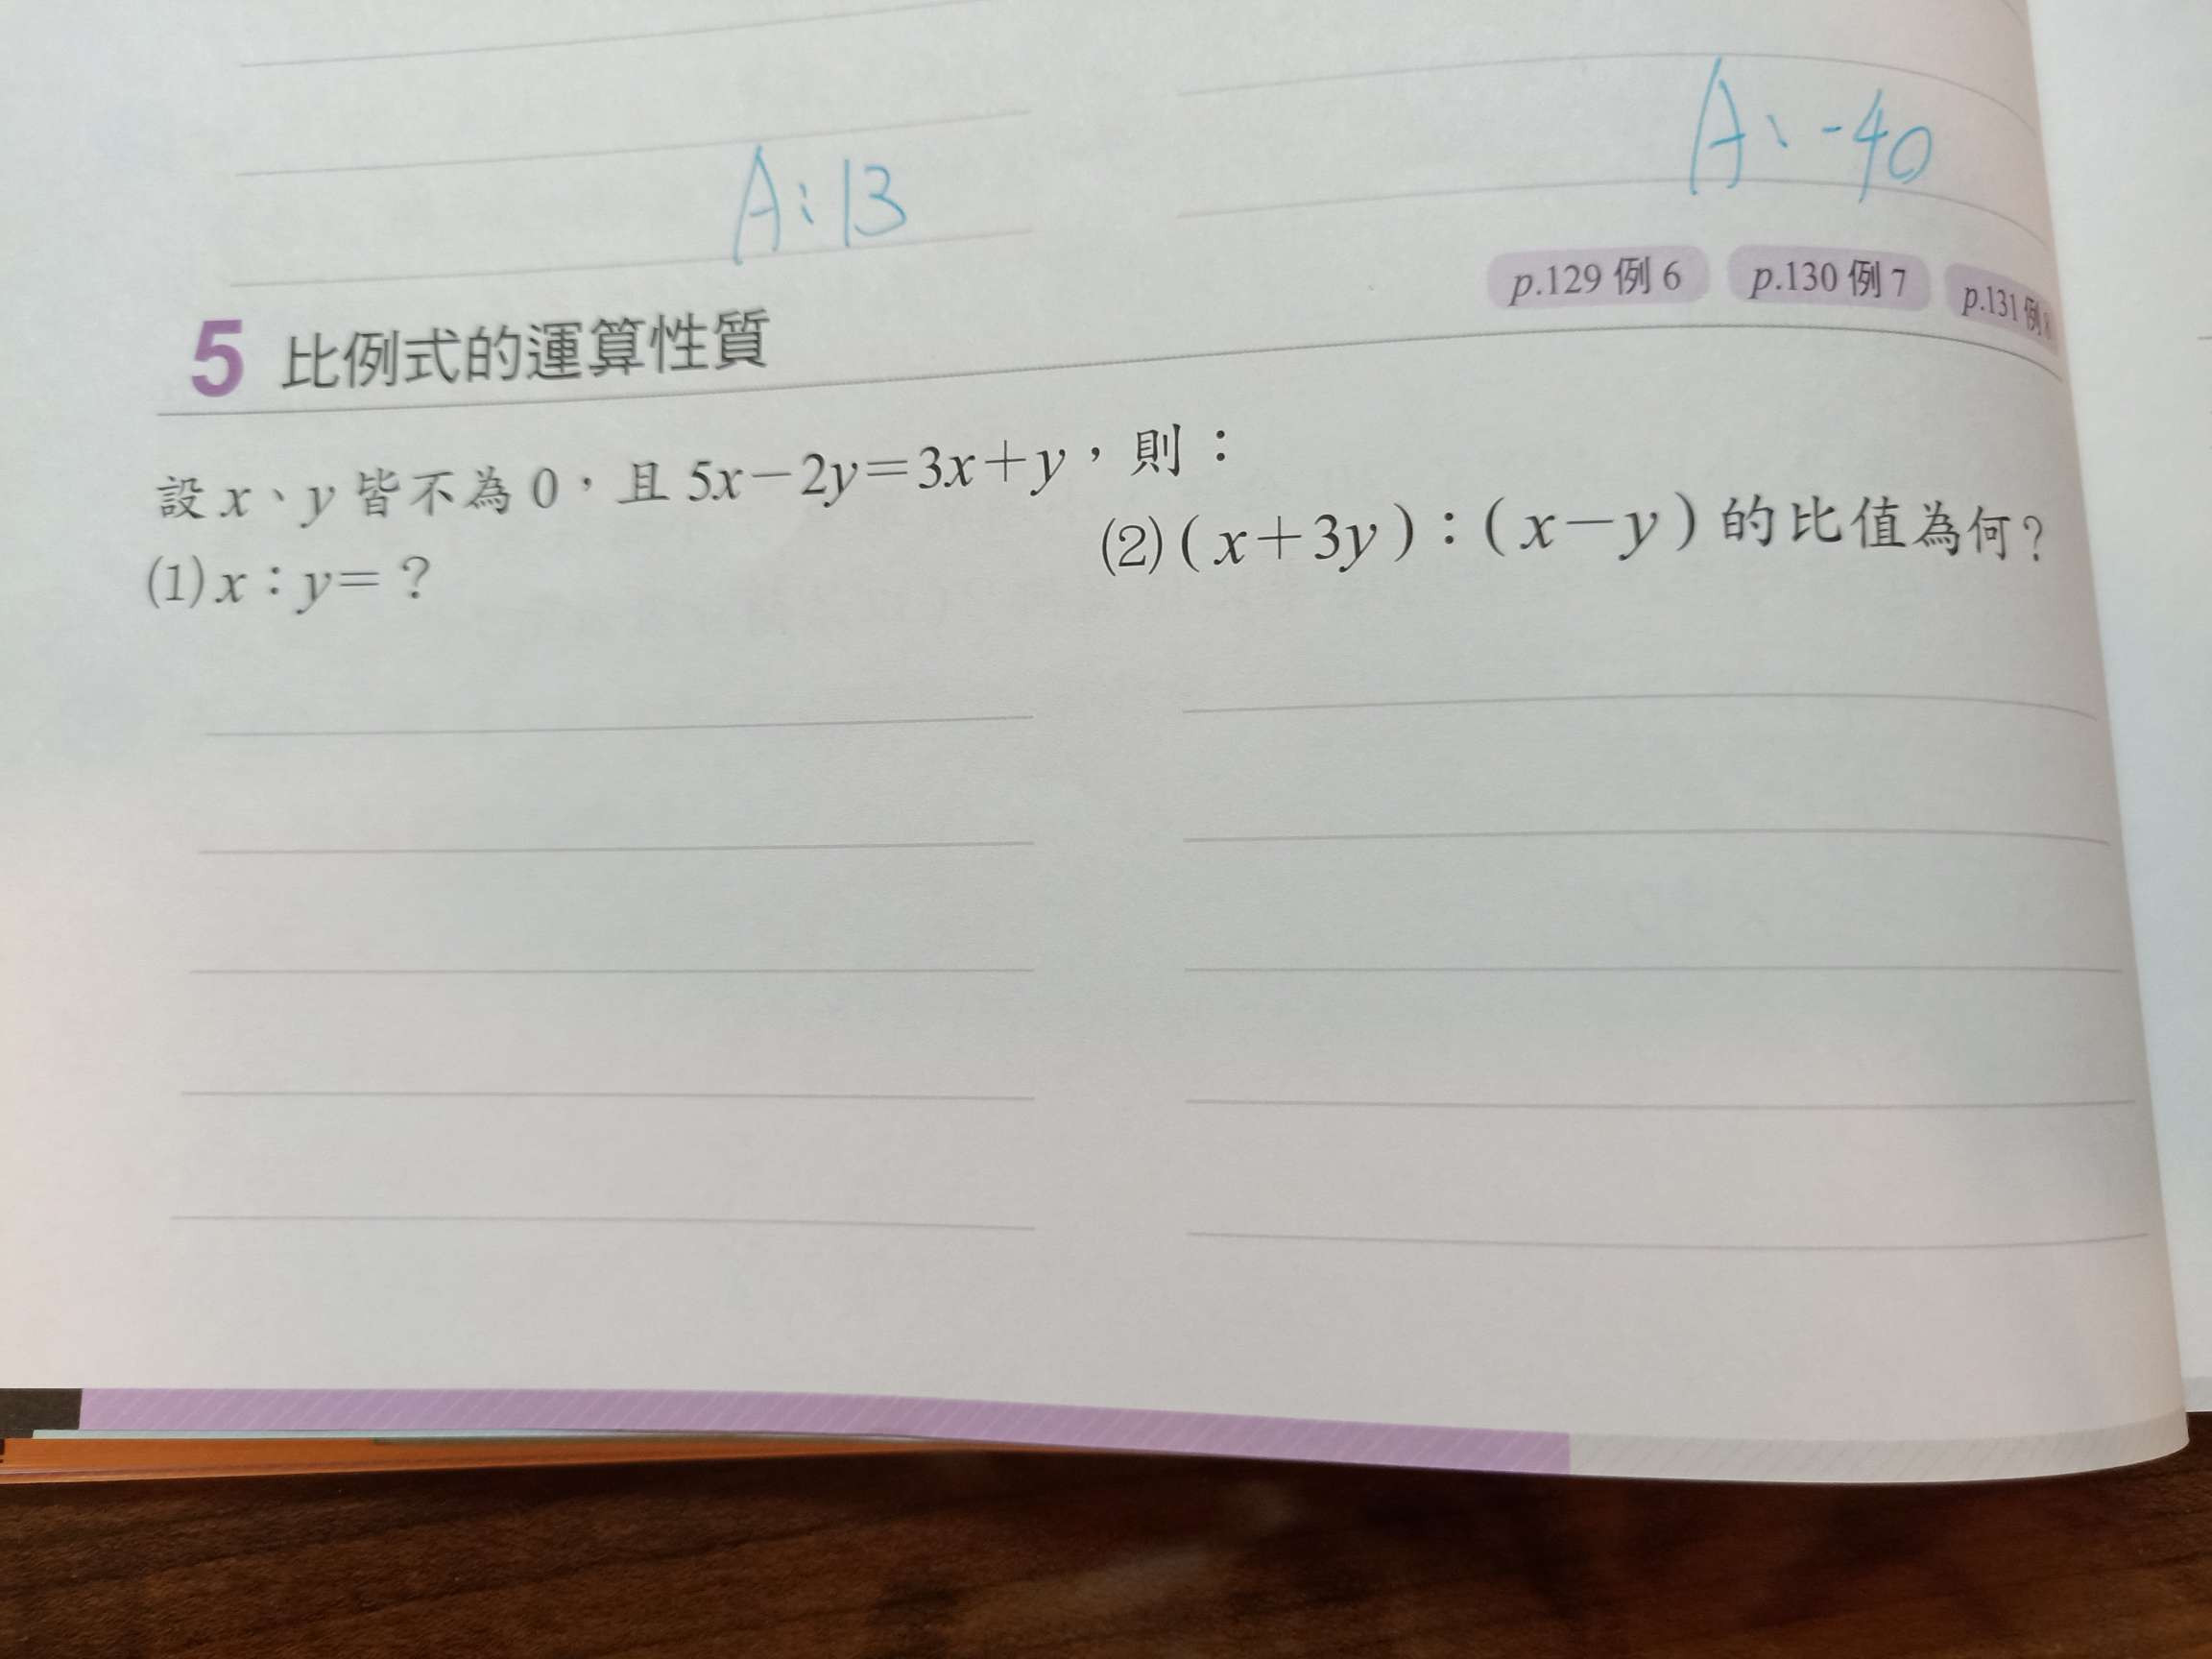 A:13
A:-40
p.129 例 6 p.130 例 7 p.131 例
5 比例式的運算性質
設 x、y 皆不為 0，且 5x－2y＝3x＋y，則：
(1) x：y＝？
(2) ( x＋3y )：( x－y ) 的比值為何？